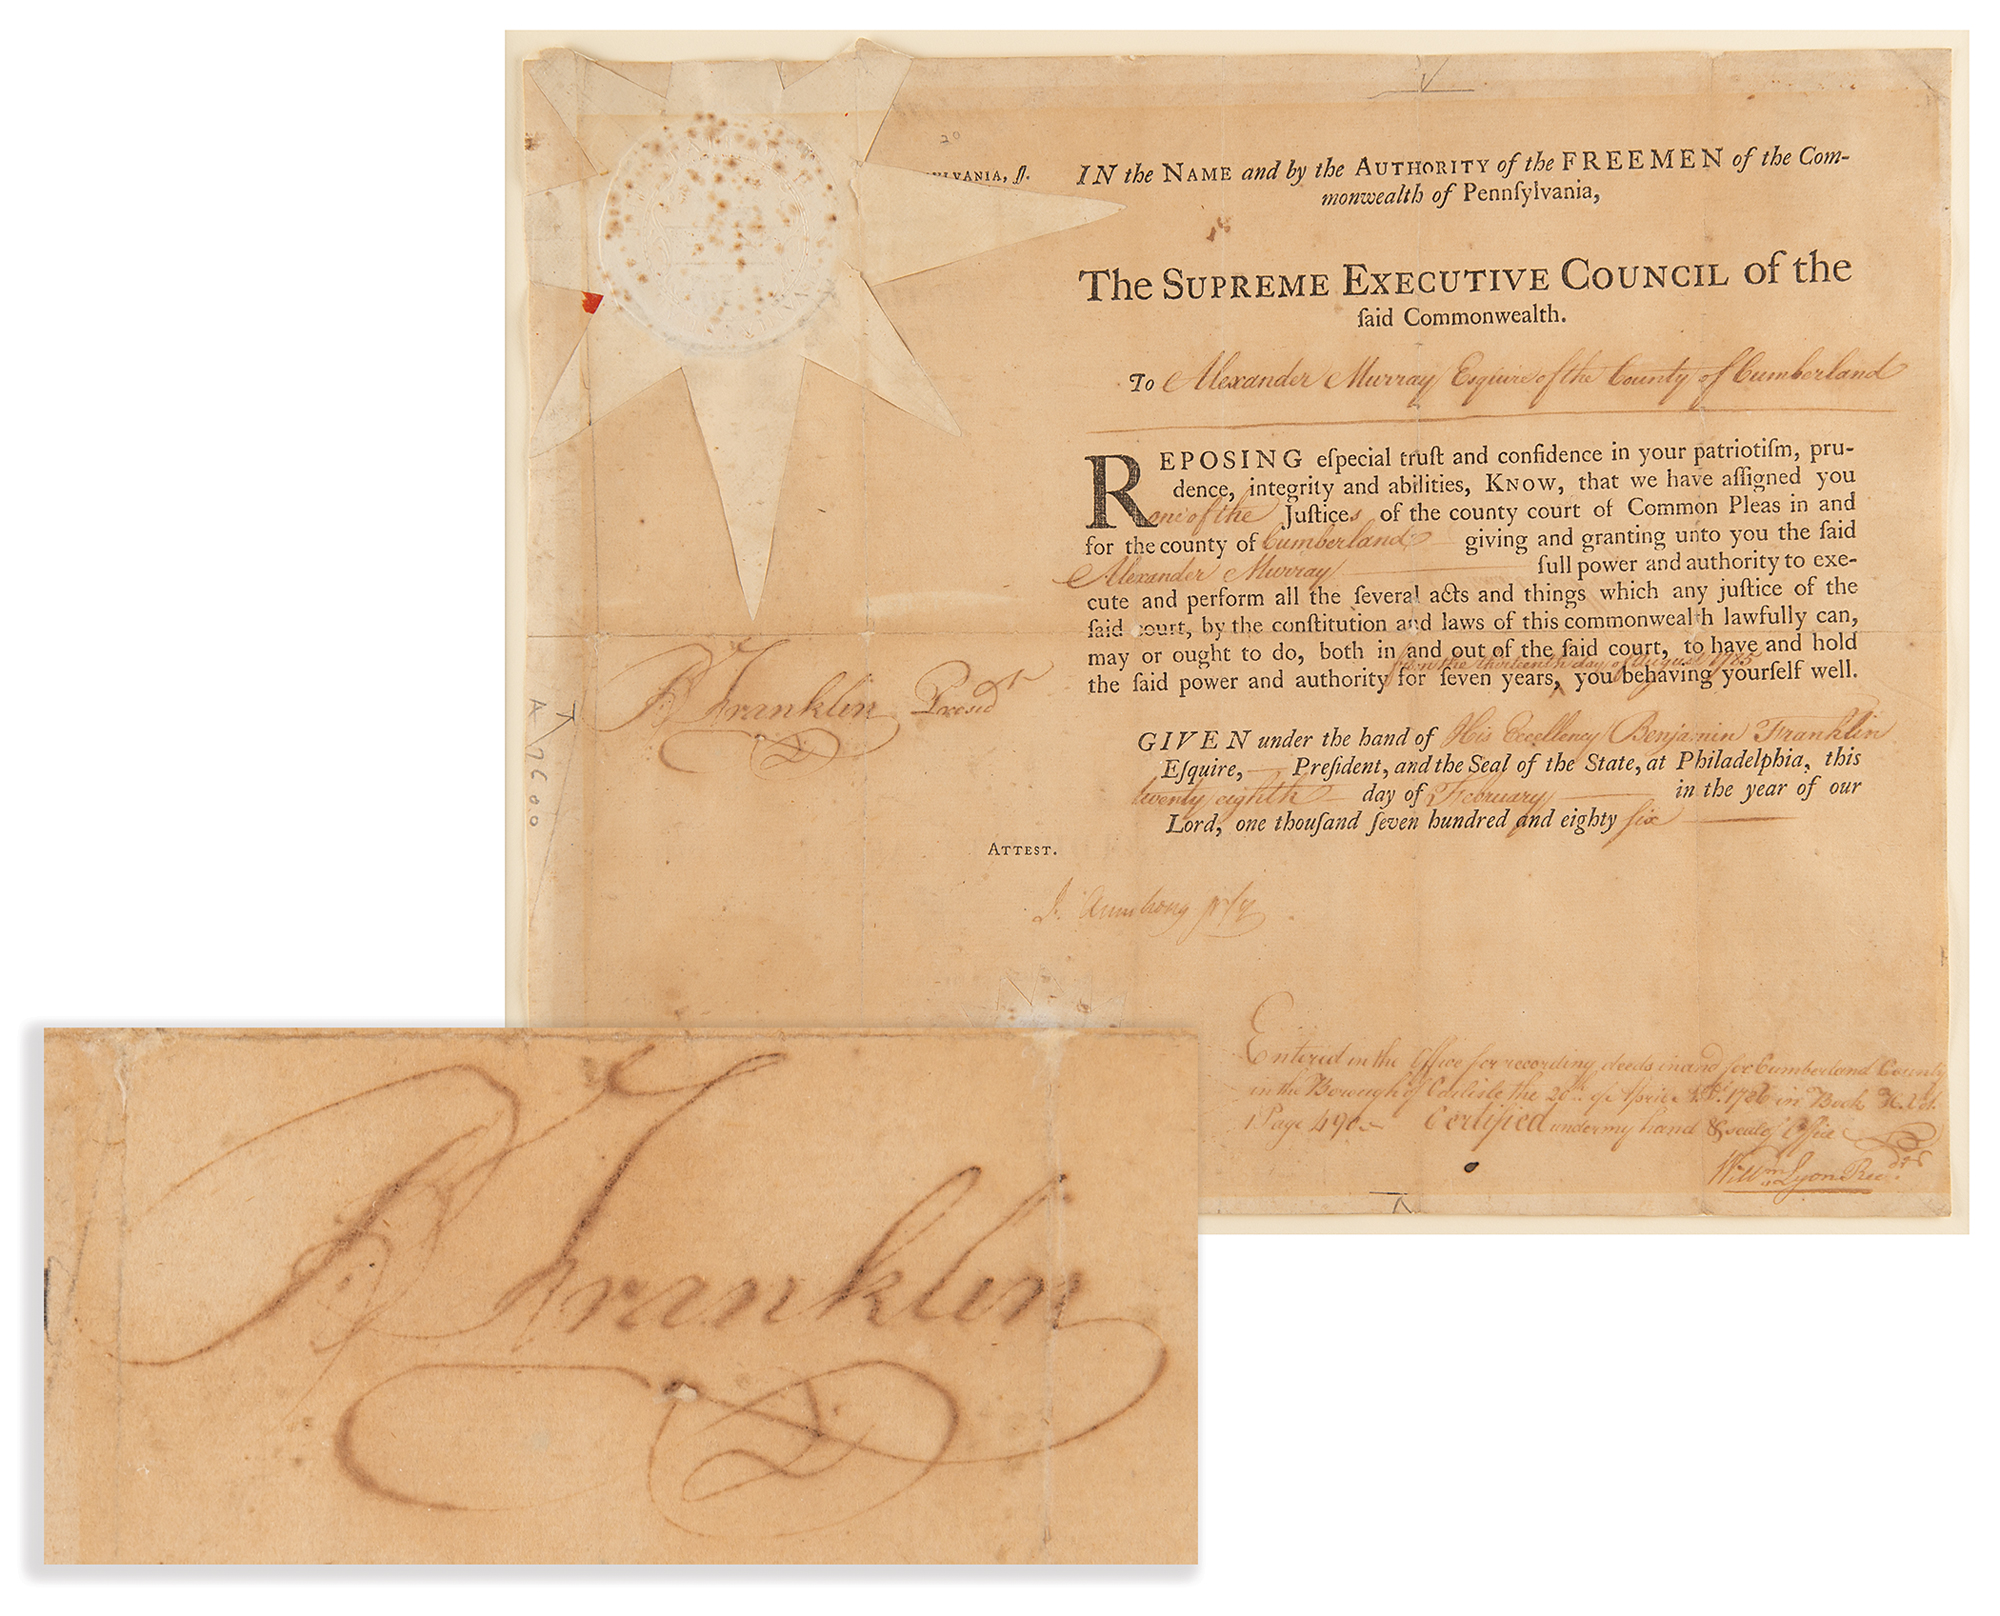 20
YLVANIA, ſſ.
IN the NAME and by the AUTHORITY of the FREEMEN of the Com-
monwealth of Pennſylvania,
The SUPREME EXECUTIVE COUNCIL of the
ſaid Commonwealth.
To Alexander Murray Esquire of the County of Cumberland
REPOSING eſpecial truſt and confidence in your patriotiſm, pru-
dence, integrity and abilities, KNOW, that we have aſſigned you
one of the Juſtices of the county court of Common Pleas in and
for the county of Cumberland giving and granting unto you the ſaid
Alexander Murray full power and authority to exe-
cute and perform all the ſeveral acts and things which any juſtice of the
ſaid court, by the conſtitution and laws of this commonwealth lawfully can,
may or ought to do, both in and out of the ſaid court, to have and hold
from the thirteenth day of August 1785
the ſaid power and authority for ſeven years, you behaving yourſelf well.
B Franklin Presidt
GIVEN under the hand of His Excellency Benjamin Franklin
Eſquire, Preſident, and the Seal of the State, at Philadelphia, this
twenty eighth day of February in the year of our
Lord, one thouſand ſeven hundred and eighty ſix
ATTEST.
J. Armstrong jr
Entered in the Office for recording deeds in and for Cumberland County
in the Borough of Carlisle the 20th of April A.D. 1786 in Book H. Vol.
1 Page 490. Certified under my hand & seal of Office
Willm Lyon Recdr
B Franklin